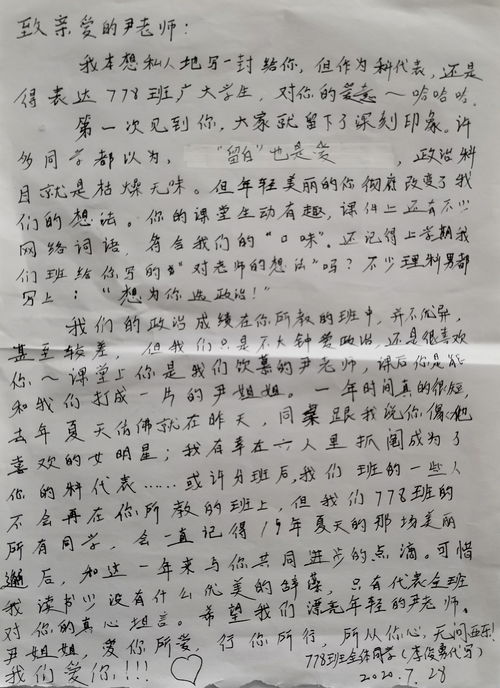 致亲爱的尹老师：
我本想私人地写一封给你，但作为科代表，还是
得表达778班广大学生，对你的爱意～哈哈哈。
第一次见到你，大家就留下了深刻印象。许
多同学都以为，“留白”也是爱，政治科
目就是枯燥无味。但年轻美丽的你彻底改变了我
们的想法。你的课堂生动有趣，课件上还有不少
网络词语，符合我们的“口味”。还记得上学期我
们班给你写的“对老师的想法”吗？不少理科男都
写上：“想为你选政治！”
我们的政治成绩在你所教的班中，并不优异，
甚至较差，但我们只是不大钟爱政治，还是很喜欢
你～课堂上你是我们钦慕的尹老师，课后你是能
和我们打成一片的尹姐姐。一年时间真的很短，
去年夏天仿佛就在昨天，同桌跟我说你像他
喜欢的女明星；我有幸在六人里抓阄成为了
你的科代表……或许分班后，我们班的一些人
不会再在你所教的班上，但我们778班的
所有同学，会一直记得19年夏天的那场美丽
邂后，和这一年来与你共同进步的点滴。可惜
我读书少没有什么优美的辞藻，只有代表全班
对你的真心坦言。希望我们漂亮年轻的尹老师。
尹姐姐，爱你所爱，行你所行，所从你心，无问西东！
我们爱你！！！
778班全体同学（李俊勇代写）
2020.7.28